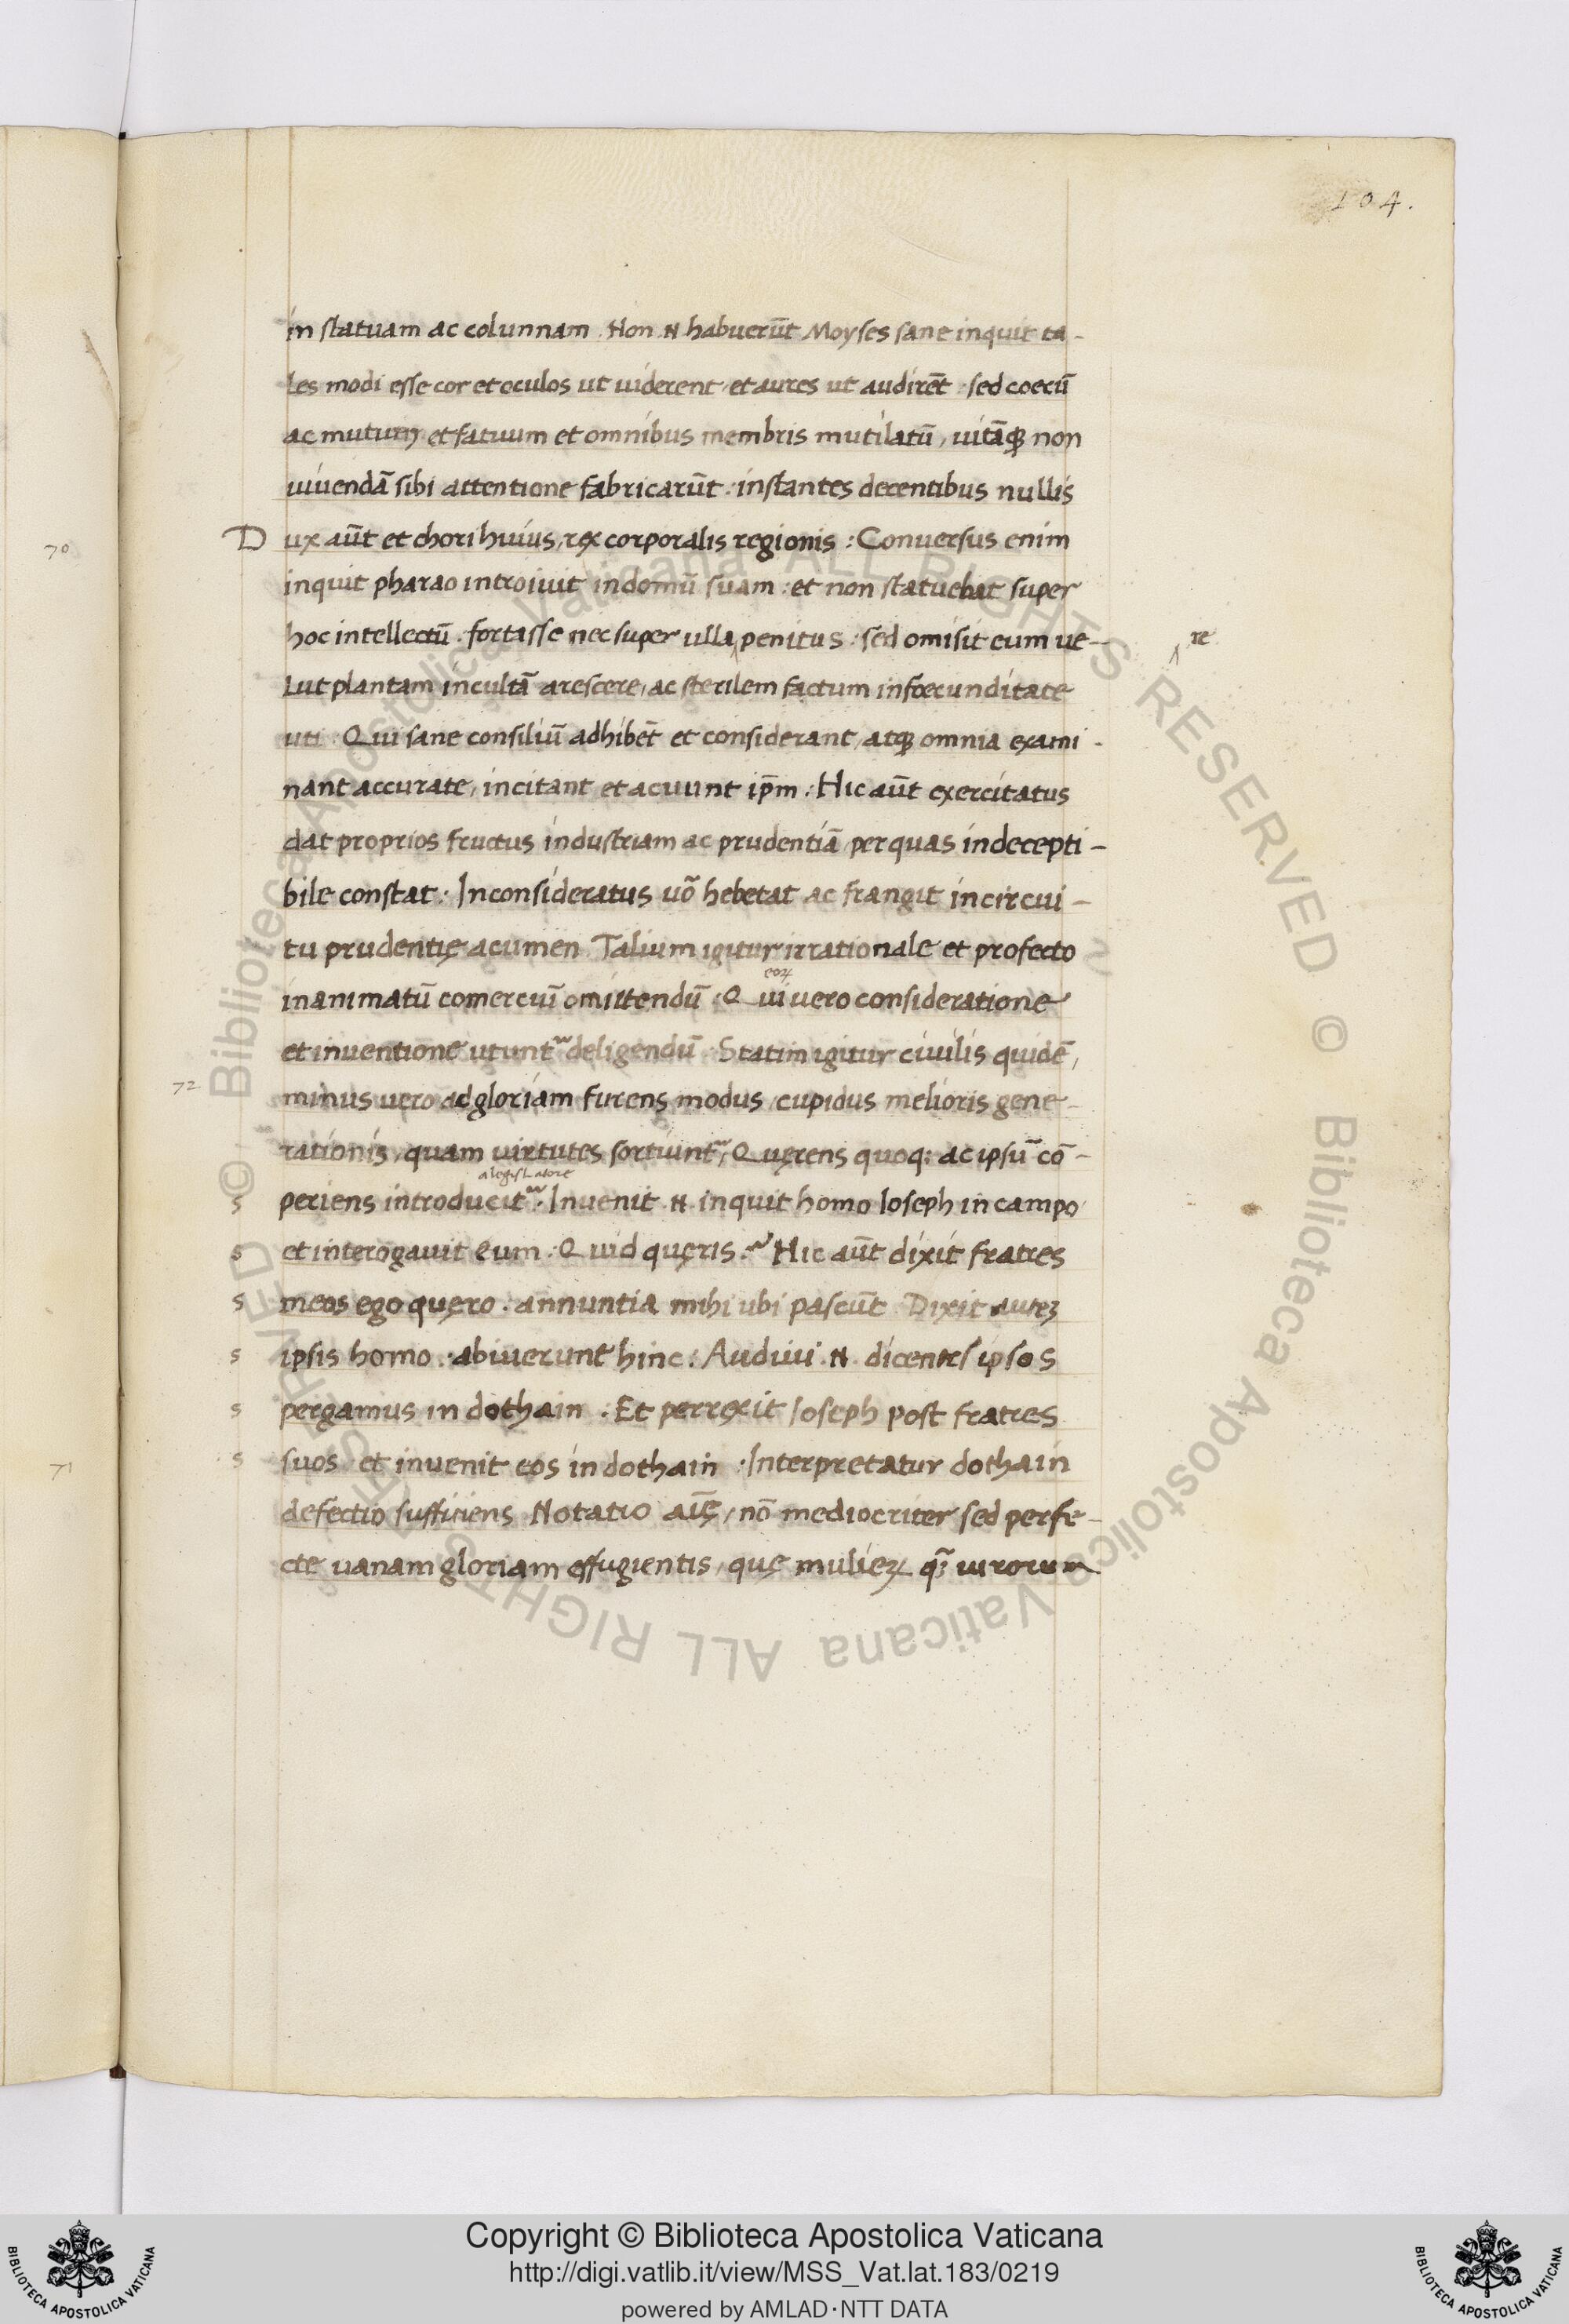 104.
in statuam ac colunnam. Non .N. habuerūt Moyses sane inquit ta-
les modi esse cor et oculos ut uiderent, et aures ut audirēt : sed coecū
ac mutum et fatuum et omnibus membris mutilatū, uitāqꝫ non
uiuendā sibi attentione fabricarūt : instantes decentibus nullis
70
Dux aūt et chori huius, rex corporalis regionis : Conuersus enim
inquit pharao introiuit in domū suam : et non statuebat super
hoc intellectū. fortasse nec super ulla ‸ penitus : sed omisit eum ue-
‸ re
lut plantam incultā arescere, ac sterilem factum infœcunditate
uti. Qui sane consiliū adhibēt et considerant, atqꝫ omnia exami-
nant accurate, incitant et acuunt ip̄m : Hic aūt exercitatus
dat proprios fructus industriam ac prudentiā, per quas indecepti-
bile constat : Inconsideratus uō hebetat ac frangit in circui-
tu prudentię acumen. Talium igitur irrationale et profecto
eoꝝ
inanimatū comerciū omittendū : Qui uero consideratione
et inuentione utunt᷑ deligendū : Statim igitur ciuilis quidē,
72
minus uero ad gloriam furens modus, cupidus melioris gene-
rationis, quam uirtutes sortiunt᷑, Quęrens quoq: ac ipsū cō-
a legislatore
s periens introducit᷑. Inuenit .N. inquit homo Ioseph in campo
s et interogauit eum : Quid quęris.~ Hic aūt dixit fratres
s meos ego quęro. annuntia mihi ubi pascūt. Dixit auteꝫ
s ipsis homo : abiuerunt hinc : Audiui .N. dicentes ipsos
s pergamus in dothain. Et perrexit Ioseph post fratres
71
s suos et inuenit eos in dothain : Interpretatur dothain
defectio sufficiens. Notatio aīę, nō mediocriter sed perfe-
cte uanam gloriam effugientis, quę mulieꝝ q̄ꝫ uirorum
© Biblioteca Apostolica Vaticana ALL RIGHTS RESERVED © Biblioteca Apostolica Vaticana ALL RIGHTS RESERVED
BIBLIOTECA APOSTOLICA VATICANA
Copyright © Biblioteca Apostolica Vaticana
http://digi.vatlib.it/view/MSS_Vat.lat.183/0219
powered by AMLAD·NTT DATA
BIBLIOTECA APOSTOLICA VATICANA